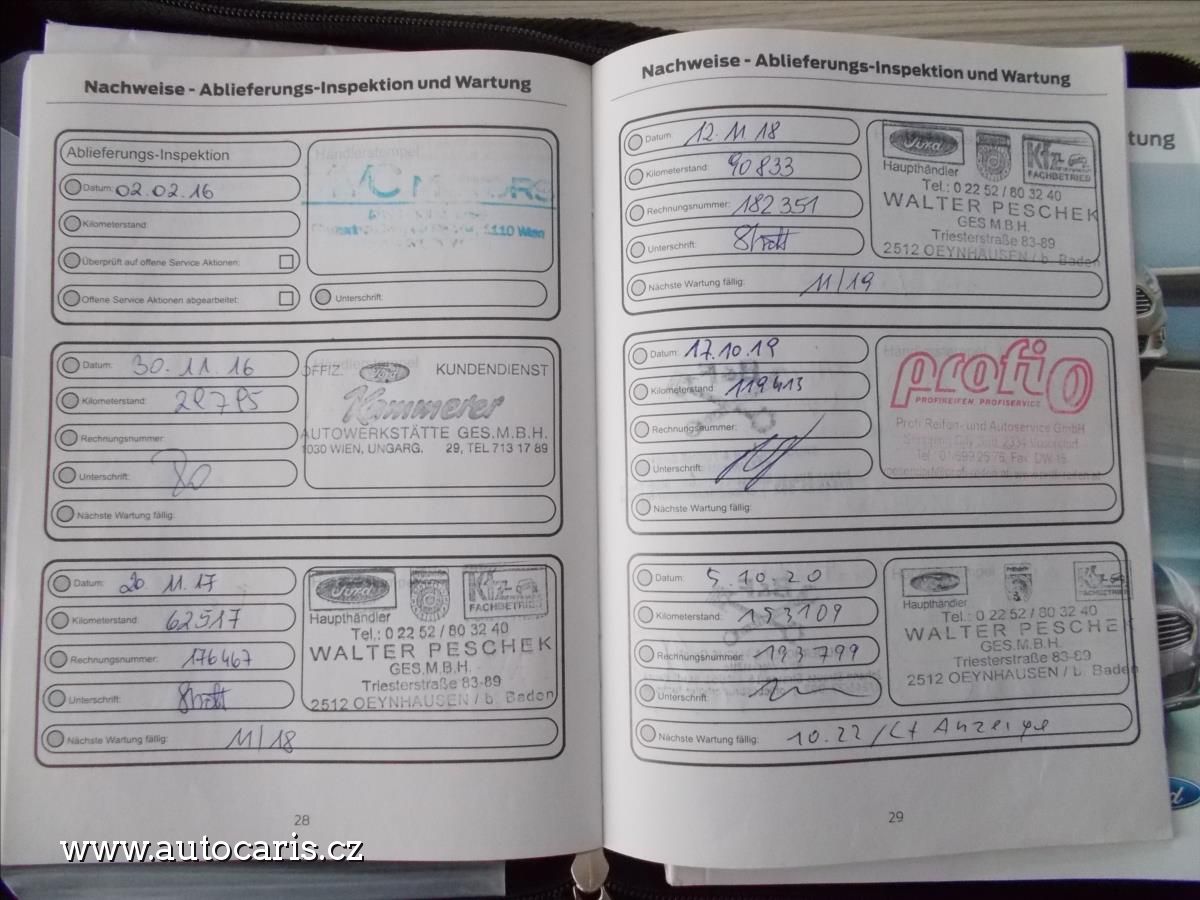 Nachweise - Ablieferungs-Inspektion und Wartung
Ablieferungs-Inspektion
Händlerstempel
Datum: 02.02.16
Kilometerstand:
Überprüft auf offene Service Aktionen:
Offene Service Aktionen abgearbeitet:
Unterschrift:
1110 Wien
Datum: 30.11.16
Kilometerstand: 29795
Rechnungsnummer:
Unterschrift:
Nächste Wartung fällig:
OFFIZ. Ford KUNDENDIENST
Kammerer
AUTOWERKSTÄTTE GES.M.B.H.
1030 WIEN, UNGARG. 29, TEL 713 17 89
Datum: 20.11.17
Kilometerstand: 62517
Rechnungsnummer: 176467
Unterschrift:
Nächste Wartung fällig: 11/18
Ford
Kfz
FACHBETRIEB
Haupthändler
Tel.: 0 22 52 / 80 32 40
WALTER PESCHEK
GES.M.B.H.
Triesterstraße 83-89
2512 OEYNHAUSEN / b. Baden
28
Nachweise - Ablieferungs-Inspektion und Wartung
Datum: 12.11.18
Kilometerstand: 90833
Rechnungsnummer: 182351
Unterschrift:
Nächste Wartung fällig: 11/19
Ford
Kfz
FACHBETRIEB
Haupthändler
Tel.: 0 22 52 / 80 32 40
WALTER PESCHEK
GES.M.B.H.
Triesterstraße 83-89
2512 OEYNHAUSEN / b. Baden
Datum: 17.10.19
Kilometerstand: 119413
Rechnungsnummer:
Unterschrift:
Nächste Wartung fällig:
profi
PROFIREIFEN. PROFISERVICE
Profi Reifen- und Autoservice GmbH
Tel.: 01/699 25 76, Fax: DW 15
Datum: 5 10 20
Kilometerstand: 153109
Rechnungsnummer: 193799
Unterschrift:
Nächste Wartung fällig: 10.22 / Lt Anzeige
Ford
Kfz
Haupthändler
Tel.: 0 22 52 / 80 32 40
WALTER PESCHEK
GES.M.B.H.
Triesterstraße 83-89
2512 OEYNHAUSEN / b. Baden
29
tung
www.autocaris.cz